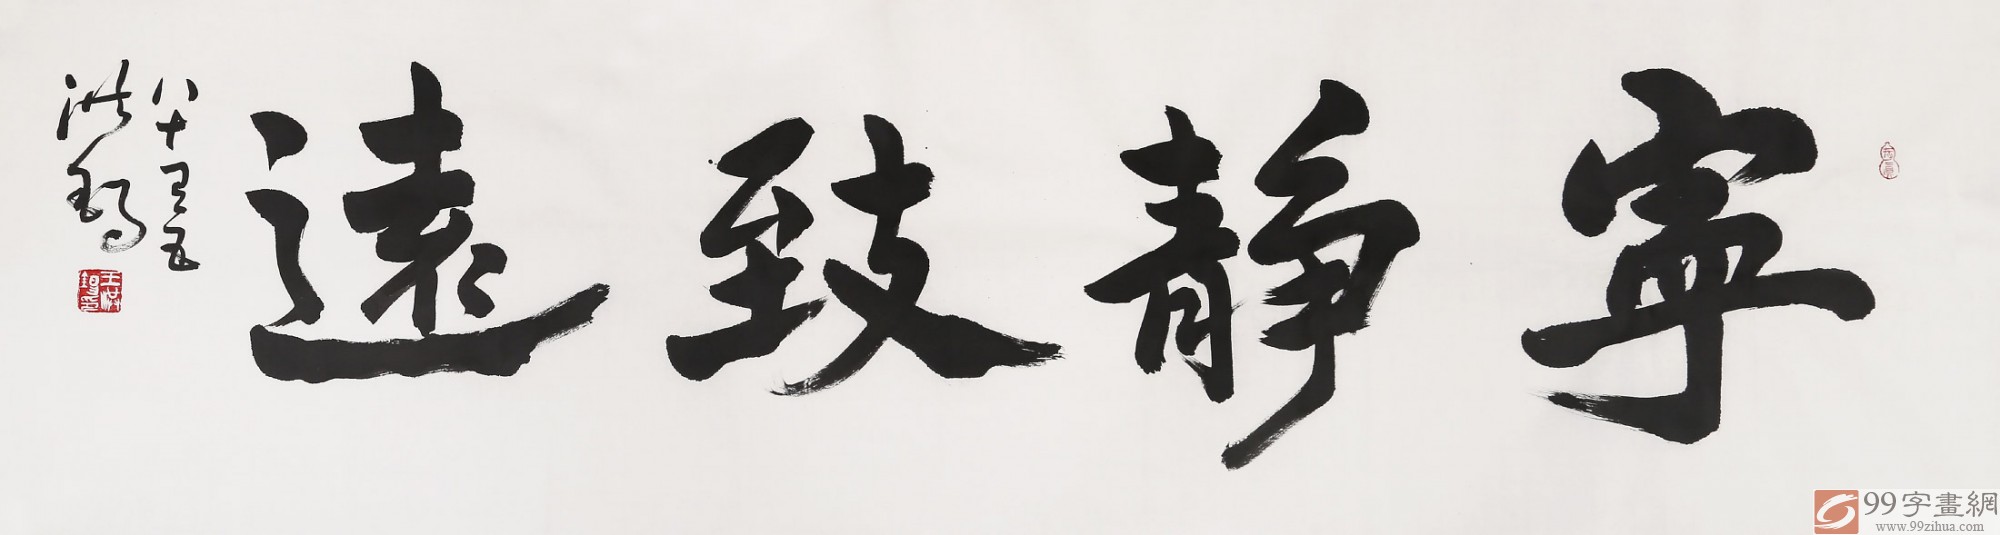 寧靜致遠
八十有五
洪錫
王洪錫印
99字畫網
www.99zihua.com